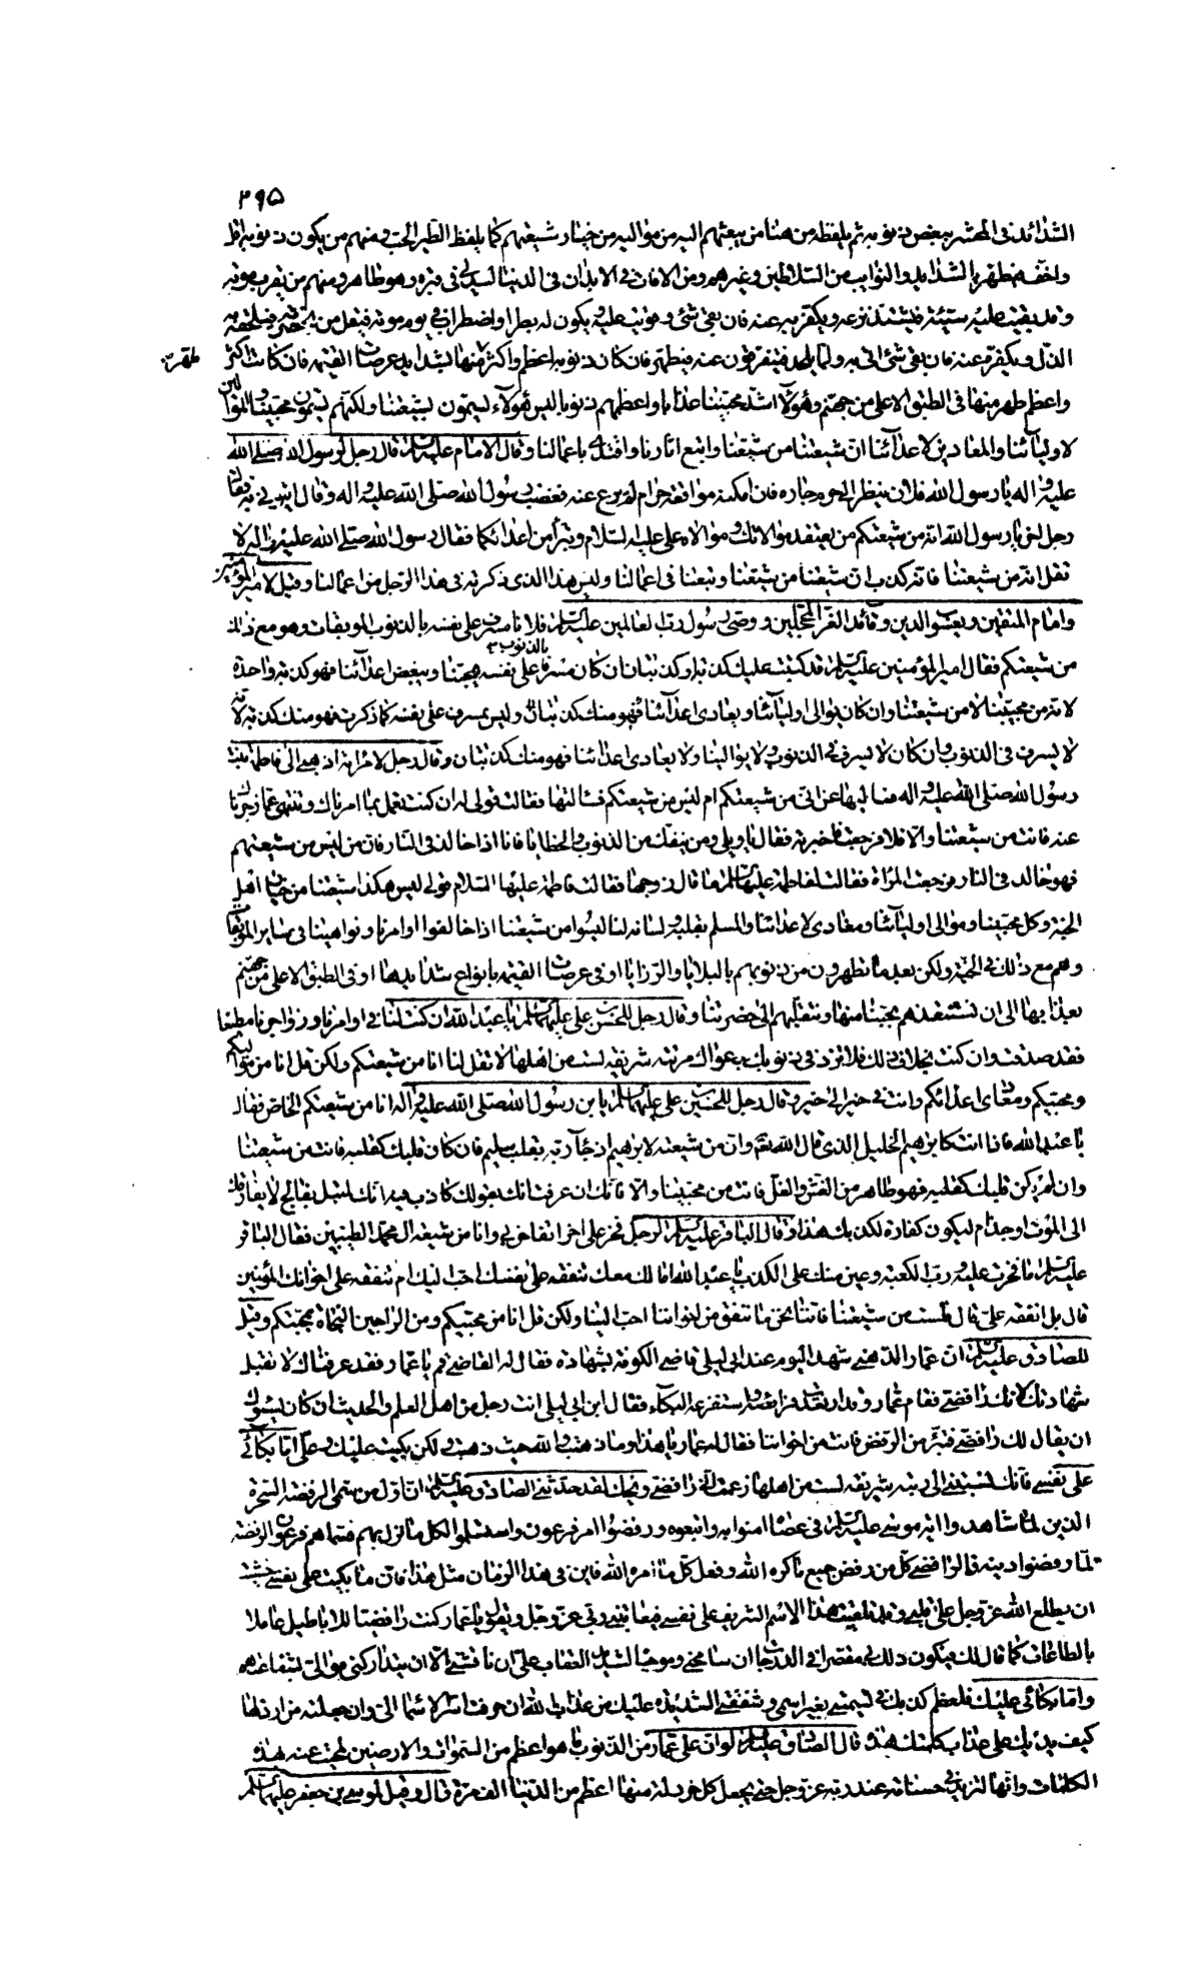 ٢٩٥
الشدائد فى المحشر ببعض ذنوبه ثم يلقطه من هنا من يبعثهم اليه من مواليه من خيار شيعتهم كما يلقط الطير الحب و منهم من يكون ذنوبه اقل
واخف فيطهر بالشدايد والنوايب من السلاطين و غيرهم و من الافات فى الابدان فى الدنيا ليدلى فى قبره وهو طاهر و منهم من يقرب موته
وقد بقيت عليه سيئة فيشتد نزعه و يكفر به عنه فان بقى شئ و قويت عليه و يكون له بطر او اضطراب فى يوم موته فيقل من بحضرته فيلحقه به
الذل و يكفر عنه فان بقى شئ اتى به و لما يلحد فيتفرقون عنه فيطهر فان كان ذنوبه اعظم و اكثر طهر منها بشدايد عرصات القيمة فان كانت اكثر
واعظم طهر منها فى الطبق الاعلى من جهنم و هؤلآء اشد محبينا عذابا و اعظمهم ذنوبا ليس هؤلاء يسمون بشيعتنا و لكنهم يسمون محبينا و الموالين
لاوليآئنا والمعادين لاعدآئنا ان شيعتنا من شيعنا و اتبع اثارنا و اقتدى باعمالنا وقال الامام عليه السلم قال رجل لرسول الله صلى الله
عليه و اله يا رسول الله فلان ينظر الى حرم جاره فان امكنه مواقعة حرام لم يرع عنه فغضب رسول الله صلى الله عليه و اله وقال ايتونى به فقال
رجل اخر يا رسول الله انه من شيعتكم من يعتقد موالاتك و موالاة على عليه السلام و يتبرأ من اعدائكما فقال رسول الله صلى الله عليه و اله لا
تقل انه من شيعتنا فانه كذب ان شيعتنا من شيعنا و تبعنا فى اعمالنا و ليس هذا الذى ذكرته فى هذا الرجل من اعمالنا و قيل لامير المؤمنين
وامام المتقين و يعسوب الدين و قائد الغر المحجلين و وصى رسول رب العالمين عليه السلم فلان مسرف على نفسه بالذنوب الموبقات و هو مع ذلك
من شيعتكم فقال امير المؤمنين عليه السلم قد كتبت عليك كذبة او كذبتان ان كان مسرفا بالذنوب على نفسه يحبنا و يبغض اعدآئنا فهو كذبة واحدة
لانه من محبينا لا من شيعتنا وان كان يوالى اوليآئنا و يعادى اعدآئنا فهو منك كذبتان و ليس بمسرف على نفسه كما ذكرت فهو منك كذبة لانه
لا يسرف فى الذنوب و ان كان لا يسرف فى الذنوب و لا يوالينا و لا يعادى اعدائنا فهو منك كذبتان و قال رجل لامراته اذهبى الى فاطمة بنت
رسول الله صلى الله عليه و اله فسليها عنى انى من شيعتكم ام ليس من شيعتكم فسالتها فقالت قولى له ان كنت تعمل بما امرناك و تنتهى عما زجرناك
عنه فانت من شيعتنا والا فلا فرجعت فاخبرته فقال يا ويلى و من ينفك من الذنوب و الخطايا فانا اذا خالد فى النار فان من ليس من شيعتهم
فهو خالد فى النار فرجعت المراة فقالت لفاطمة عليها السلم ما قال زوجها فقالت فاطمة عليها السلام قولى ليس هكذا شيعتنا من خيار اهل
الجنة و كل محبينا و موالى اوليآئنا و معادى لاعدائنا والمسلم بقلبه و لسانه لنا ليسوا من شيعتنا اذا خالفوا اوامرنا و نواهينا فى ساير الموبقات
وهم مع ذلك فى الجنة و لكن بعد ما تطهرون من ذنوبهم بالبلايا و الرزايا او فى عرصات القيمة بانواع شدايدها او فى الطبق الاعلى من جهنم
بعذابها الى ان نستنقذهم بحبنا منها و ننقلهم الى حضرتنا و قال رجل للحسن بن على عليهما السلم يا عبد الله ان كنت لنا فى اوامرنا و زواجرنا مطيعا
فقد صدقت و ان كنت بخلاف ذلك فلا تزد فى ذنوبك بدعواك مرتبة شريفة لست من اهلها لا تقل لنا انا من شيعتكم ولكن قل انا من مواليكم
و محبيكم و معادى اعدائكم و انت فى خير الى خير و قال رجل للحسين بن على عليهما السلم يا بن رسول الله صلى الله عليه و آله انا من شيعتكم الخاص فقال
يا عبد الله فاذا انت كابرهيم الخليل الذى قال الله تعالى وان من شيعته لابرهيم اذ جآء ربه بقلب سليم فان كان قلبك كقلبه فانت من شيعتنا
وان لم يكن قلبك كقلبه فهو طاهر من الغش و الغل فانت من محبينا والا فانك ان عرفت انك بقولك كاذب فيه انك لمبتل بفالج لا يفارقك
الى الموت او جذام ليكون كفارة لكذبك هذا و قال الباقر عليه السلم لرجل فخر على اخر اتفاخرنى و انا من شيعة ال محمد الطيبين فقال الباقر
عليه السلم ما فخرت عليه و رب الكعبة و غبن منك على الكذب يا عبد الله امالك معك تنفقه على نفسك احب اليك ام تنفقه على اخوانك المؤمنين
قال بل انفقه على قال فلست من شيعتنا فانا نحن ما ننفق من اخواننا احب الينا و لكن قل انا من محبيكم و من الراجين النجاة بمحبتكم و قيل
للصادق عليه السلم ان عمار الدهنى شهد اليوم عند ابى ليلى قاضى الكوفة بشهادة فقال له القاضى قم يا عمار فقد عرفناك لا تقبل
شهادتك لانك رافضى فقام عمار و قد ارتعدت فرائصه و استفرغه البكآء فقال ابن ابى ليلى انت رجل من اهل العلم و الحديث ان كان يسوؤك
ان يقال لك رافضى فتبرأ من الرفض فانت من اخواننا فقال له عمار يا هذا و ما ذهبت و الله حيث ذهبت و لكن بكيت عليك و على اما بكائى
على نفسى فانك نسبتنى الى رتبة شريفة لست من اهلها زعمت انى رافضى و يحك لقد حدثنى الصادق عليه السلم ان اول من سمى الرفضة السحرة
الذين لما شاهدوا اية موسى عليه السلم فى عصاه امنوا به و اتبعوه و رفضوا امر فرعون و استسلموا لكل ما نزل بهم فسماهم فرعون الرفضة
لما رفضوا دينه فالرافضى كل من رفض جميع ما كره الله و فعل كل ما امره الله فاين فى هذا الزمان مثل هذا فان ما بكيت على نفسى خشيت
ان يطلع الله عز و جل على قلبى و قد تلقيت هذا الاسم الشريف على نفسى فيعاتبنى ربى عز و جل و يقول يا عمار كنت رافضيا للاباطيل عاملا
بالطاعات كما قال لك فيكون ذلك بى مقصرا فى الدرجات ان سامحنى و موجبا لشديد العقاب على ان ناقشنى الا ان يتداركنى موالى بشفاعتهم
و اما بكائى عليك فلعظم كذبك فى تسميتى بغير اسمى و شفقتى الشديدة عليك من عذاب الله ان صرفت اشرف الاسمآء الى وان جعلته من ارذلها
كيف يدبك على عذاب كلمتك هذه قال الصادق عليه السلم لو ان على عمار من الذنوب ما هو اعظم من السموات و الارضين لمحيت عنه بهذه
الكلمات وانها لتزيد فى حسناته عند ربه عز و جل حتى يجعل كل خردلة منها اعظم من الدنيا الف مرة قال و قيل لموسى بن جعفر عليهما السلم